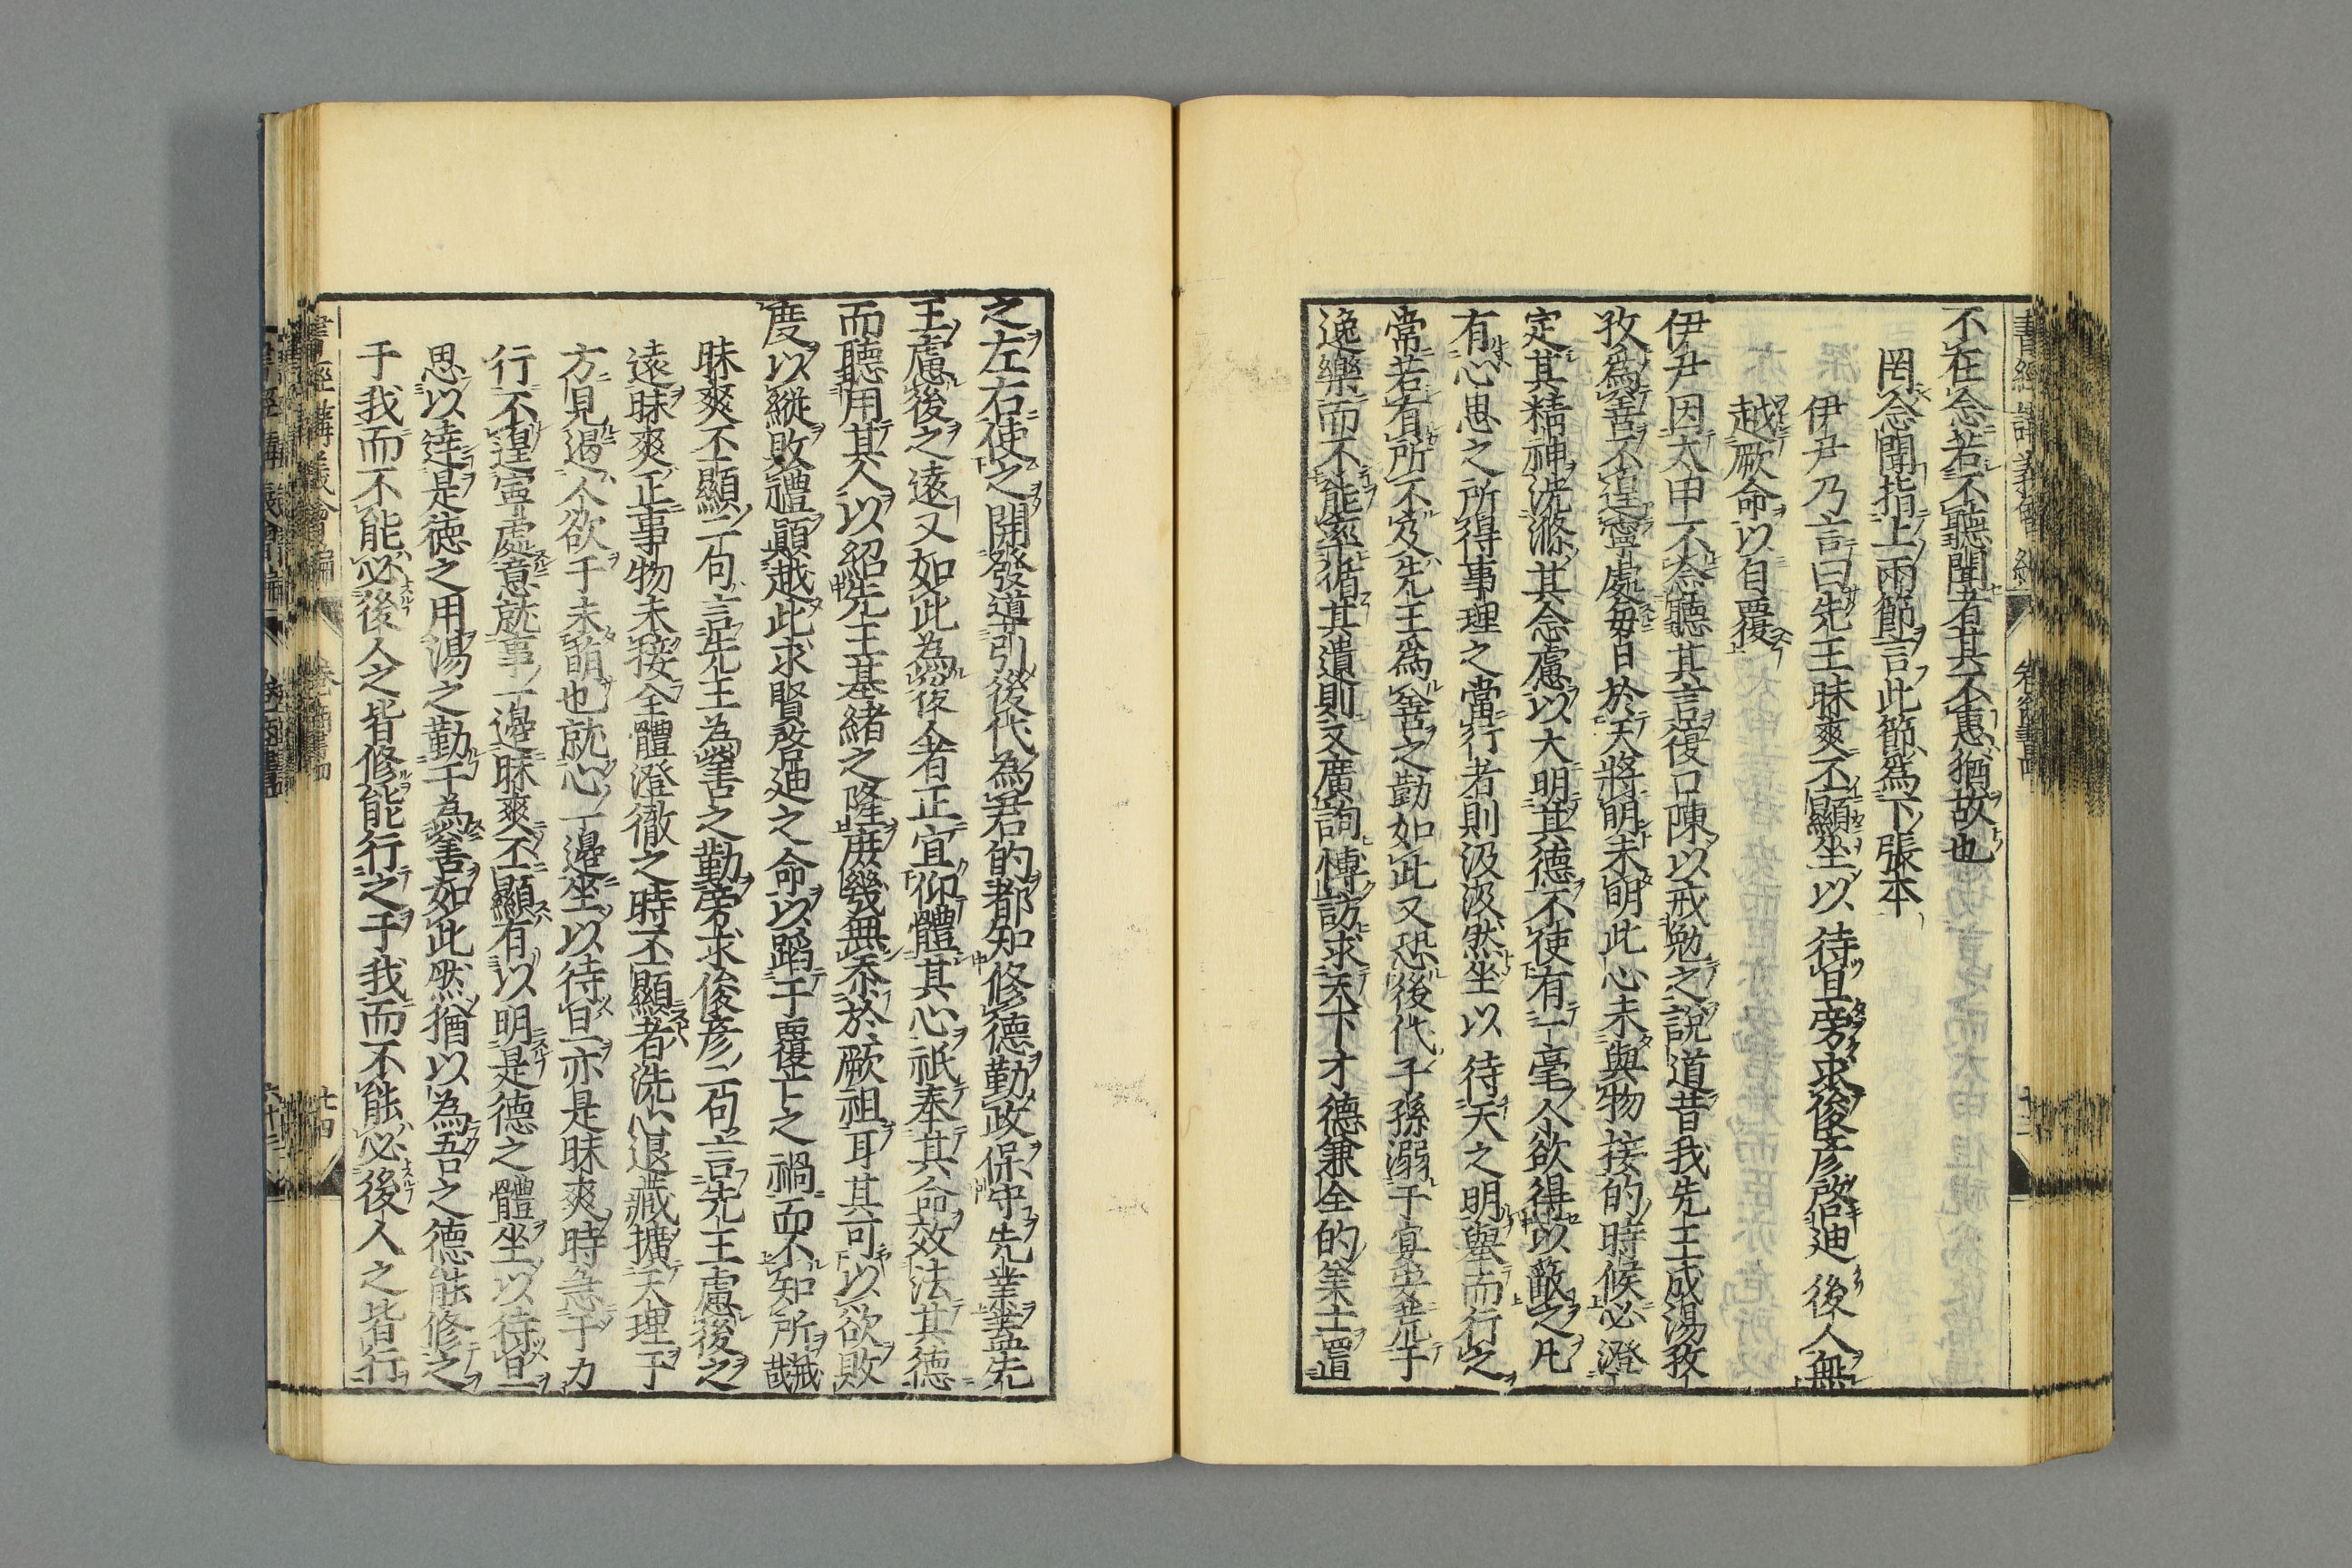 不在念若不聽聞者其不惠猶故也
罔念聞指上兩節言此節為下張本
伊尹乃言曰先王昧爽丕顯坐以待旦旁求俊彥啓迪後人無
越厥命以自覆
伊尹因太甲不念聽其言復口陳以戒勉之說道昔我先王成湯孜
孜為善不遑寧處每日於天將明未明此心未與物接的時候必澄
定其精神洗滌其念慮以大明其德不使有一毫人欲得以蔽之凡
有心思之所得事理之當行者則汲汲然坐以待天之明舉而行之
常若有所不及先王為善之勤如此又恐後代子孫溺于宴安荒于
逸樂而不能率循其遺則又廣詢博訪求天下才德兼全的人士置
之左右使之開發道引後代為君的都知修德勤政保守先業蓋先
王慮後之遠又如此為後人者正宜仰體其心祇奉其命效法其德
而聽用其人以紹先王基緒之隆庶幾無忝於厥祖耳其可以欲敗
度以縱敗禮顛越此求賢啓迪之命以蹈于覆亡之禍而不知所戒哉
昧爽丕顯二句言先王為善之勤旁求俊彥二句言先王慮後之
遠昧爽正事物未接全體澄徹之時丕顯者洗心退藏擴天理于
方見遏人欲于未萌也就心一邊坐以待旦亦是昧爽時急于力
行不遑寧處意就事一邊昧爽丕顯有以明是德之體坐以待旦
思以達是德之用湯之勤于為善如此然猶以為吾之德能修之
于我而不能必後人之皆修能行之于我而不能必後人之皆行
書經講義會編